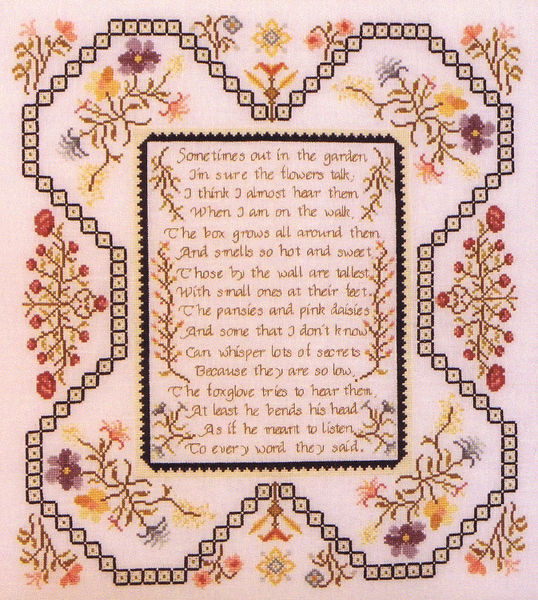 Sometimes out in the garden
I'm sure the flowers talk;
I think I almost hear them
When I am on the walk.
The box grows all around them
And smells so hot and sweet
Those by the wall are tallest
With small ones at their feet.
The pansies and pink daisies
And some that I don't know
Can whisper lots of secrets
Because they are so low.
The foxglove tries to hear them,
At least he bends his head
As if he meant to listen
To every word they said.